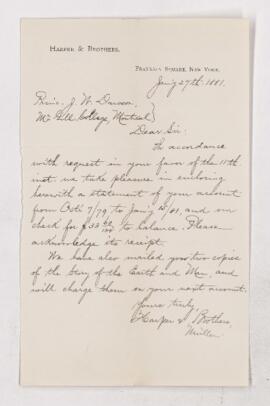 HARPER & BROTHERS,
FRANKLIN SQUARE, NEW YORK.
Jan'y 27th 1881.
Princ. J. W. Dawson,
McGill College, Montreal
Dear Sir:
In accordance
with request in your favor of the 11th
inst we take pleasure in enclosing
herewith a statement of your account
from Oct 7/79 to Jan'y 81, and our
check for $ 33 to balance. Please
acknowledge its receipt.
We have also mailed you two copies
of the Story of the Earth and Man, and
will charge them on your next account.
Yours truly,
Harper & Brothers